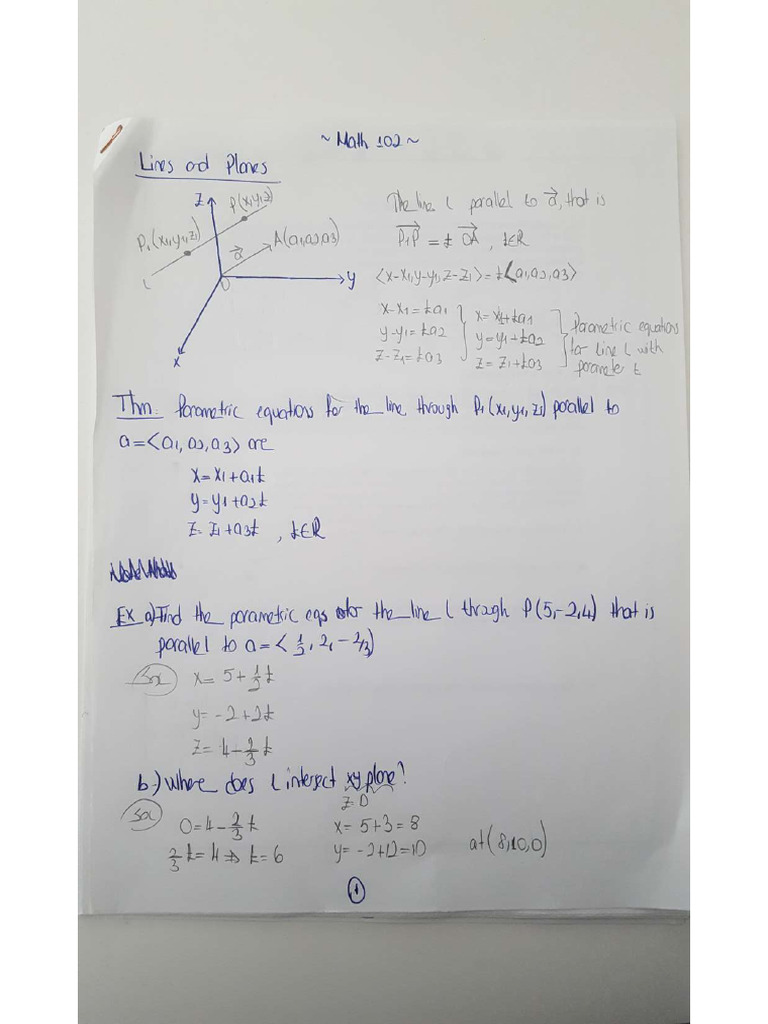 ~ Math 102 ~
Lines and Planes
z
P(x,y,z)
P1(x1,y1,z1)
A(a1,a2,a3)
a
L
O
y
x
The line L parallel to a, that is
P1P = t OA , t∈R
<x-x1, y-y1, z-z1> = t<a1,a2,a3>
x-x1=ta1
y-y1=ta2
z-z1=ta3
x=x1+ta1
y=y1+ta2
z=z1+ta3
Parametric equations
for line L with
parameter t
Thm: Parametric equations for the line through P1(x1,y1,z1) parallel to
a=<a1,a2,a3> are
x=x1+a1t
y=y1+a2t
z=z1+a3t , t∈R
Ex a) Find the parametric eqs for the line L through P(5,-2,4) that is
parallel to a=<1/2, 2, -2/3)
Sol
x= 5+1/2t
y= -2+2t
z= 4-2/3t
b-) Where does L intersect xy plane?
z=0
Sol
0=4-2/3t
2/3t=4⇒t=6
x= 5+3=8
y= -2+12=10
at (8,10,0)
1